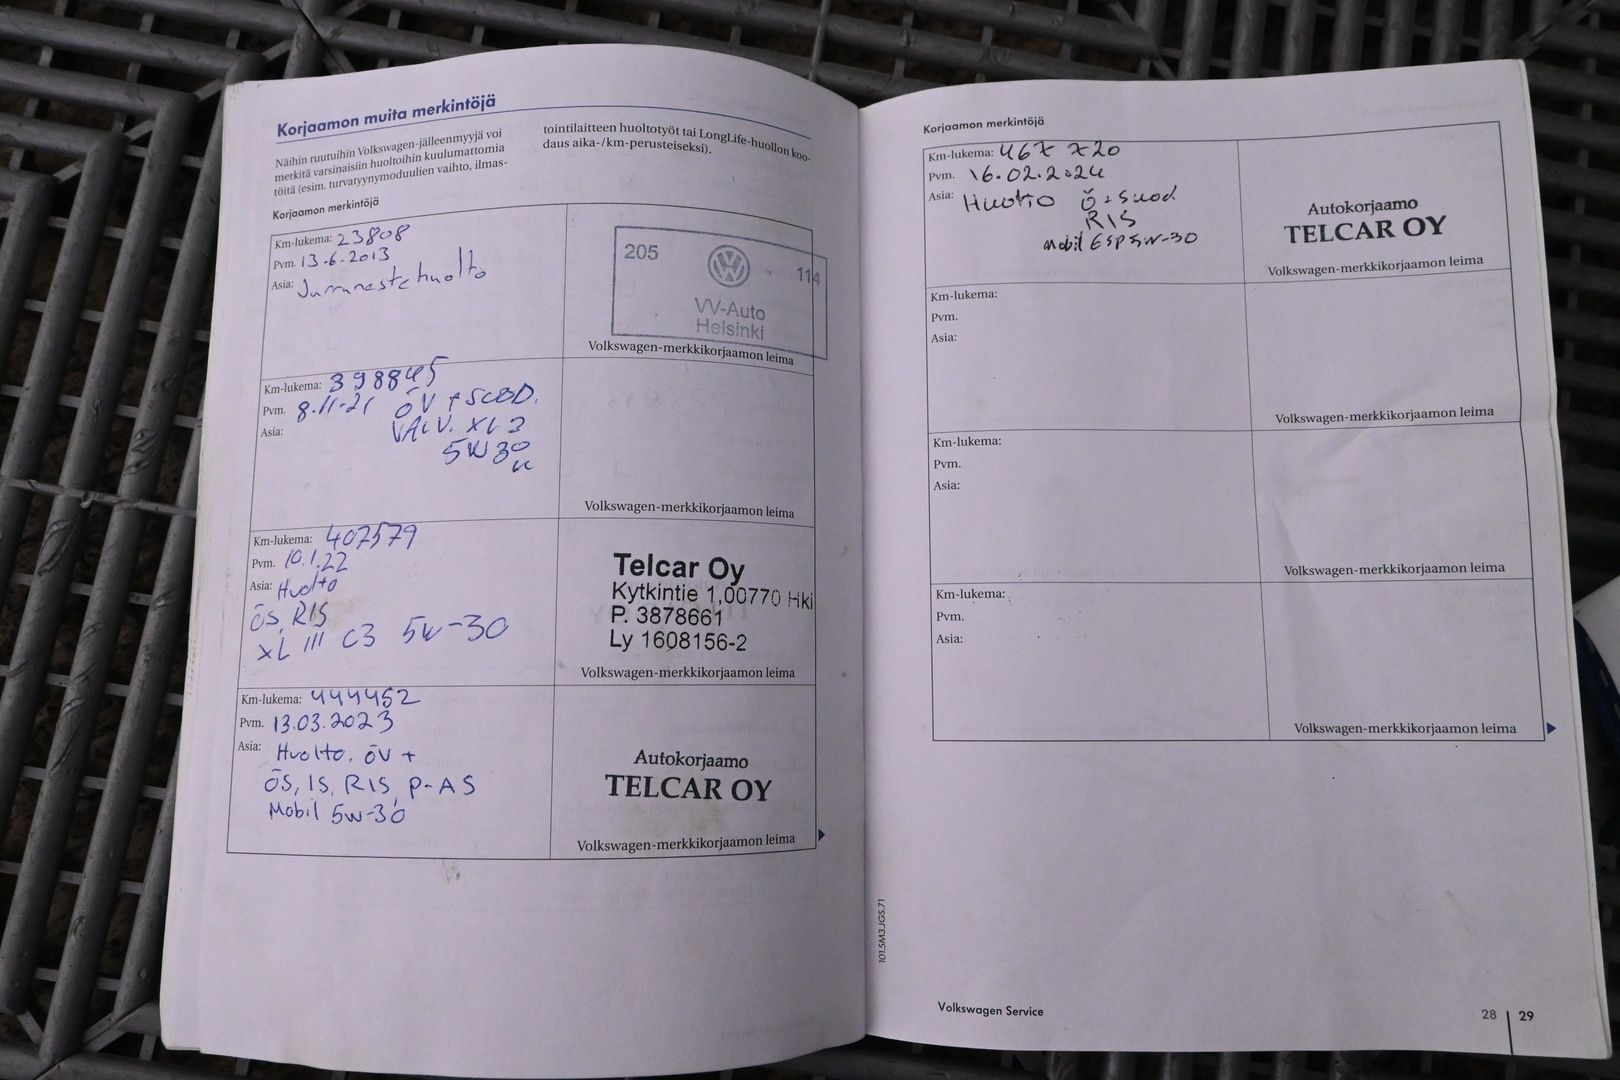 Korjaamon muita merkintöjä
Näihin ruutuihin Volkswagen-jälleenmyyjä voi
merkitä varsinaisiin huoltoihin kuulumattomia
töitä (esim. turvatyynymoduulien vaihto, ilmas-
tointilaitteen huoltotyöt tai LongLife-huollon koo-
daus aika-/km-perusteiseksi).
Korjaamon merkintöjä
Km-lukema: 23808
Pvm. 13.6.2013
Asia: Jarrunestehuolto
205
114
VV-Auto
Helsinki
Volkswagen-merkkikorjaamon leima
Km-lukema: 398845
Pvm. 8.11-21 ÖV + SUOD.
Asia: VALV. XL 3
5W30
Volkswagen-merkkikorjaamon leima
Km-lukema: 407579
Pvm. 10.1.22
Asia: Huolto
ÖS, RIS
XL III C3 5W-30
Telcar Oy
Kytkintie 1,00770 Hki
P. 3878661
Ly 1608156-2
Volkswagen-merkkikorjaamon leima
Km-lukema: 444452
Pvm. 13.03.2023
Asia: Huolto, ÖV +
ÖS, IS, RIS, P-AS
Mobil 5W-30
Autokorjaamo
TELCAR OY
Volkswagen-merkkikorjaamon leima
Korjaamon merkintöjä
Km-lukema: 467 720
Pvm. 16.02.2024
Asia: Huolto Ö + Suod
RIS
Mobil ESP 5W-30
Autokorjaamo
TELCAR OY
Volkswagen-merkkikorjaamon leima
Km-lukema:
Pvm.
Asia:
Volkswagen-merkkikorjaamon leima
Km-lukema:
Pvm.
Asia:
Volkswagen-merkkikorjaamon leima
Km-lukema:
Pvm.
Asia:
Volkswagen-merkkikorjaamon leima
101.5M3.JGS.71
Volkswagen Service
28 | 29